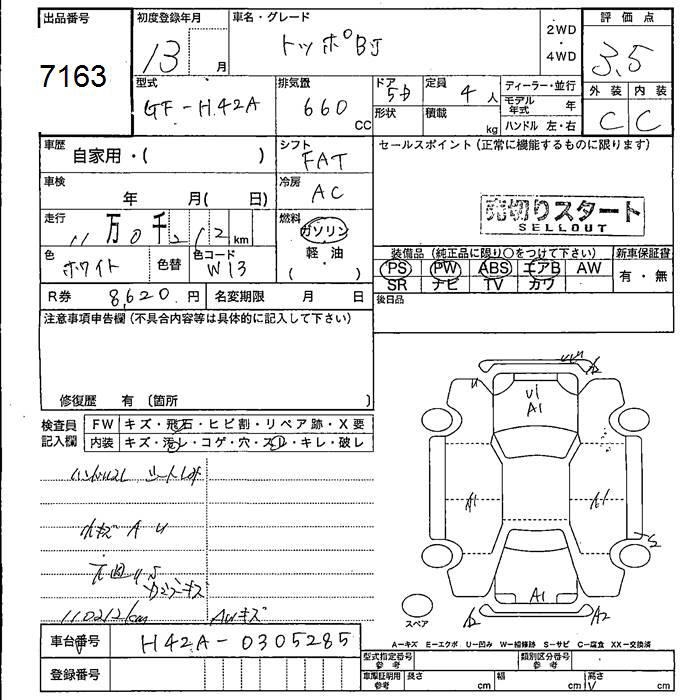 出品番号 初度登録年月 車名・グレード 評価点
7163 13 月 トッポBJ 2WD・4WD 3.5
型式 排気量 ドア 定員 ディーラー・並行 外装 内装
GF-H42A 660 CC 5D 4人 モデル年式 年 C C
形状 積載 kg ハンドル 左・右
車歴 自家用・( ) シフト FAT セールスポイント(正常に機能するものに限ります)
車検 年 月( 日) 冷房 AC
走行 11万0千212km 燃料 ガソリン 軽油 ( ・ )
売切りスタート
SELLOUT
色 ホワイト 色替 色コード W13
装備品(純正品に限り○をつけて下さい) 新車保証書
PS PW ABS エアB AW 有・無
SR ナビ TV カワ
R券 8,620円 名変期限 月 日 後日品
注意事項申告欄(不具合内容等は具体的に記入して下さい)
修復歴 有〔箇所 〕
検査員記入欄 FW キズ・飛石・ヒビ割・リペア跡・X要
内装 キズ・汚レ・コゲ・穴・スレ・キレ・破レ
A U
110212km AUキズ
U A2
U1
A1
A1 A1
A1
A2 A2
スペア
A-キズ E-エクボ U-凹み W-補修跡 S-サビ C-腐食 XX-交換済
車台番号 H42A-0305285
型式指定番号参考 類別区分番号参考
登録番号
車庫証明用参考 長さ cm 幅 cm 高さ cm